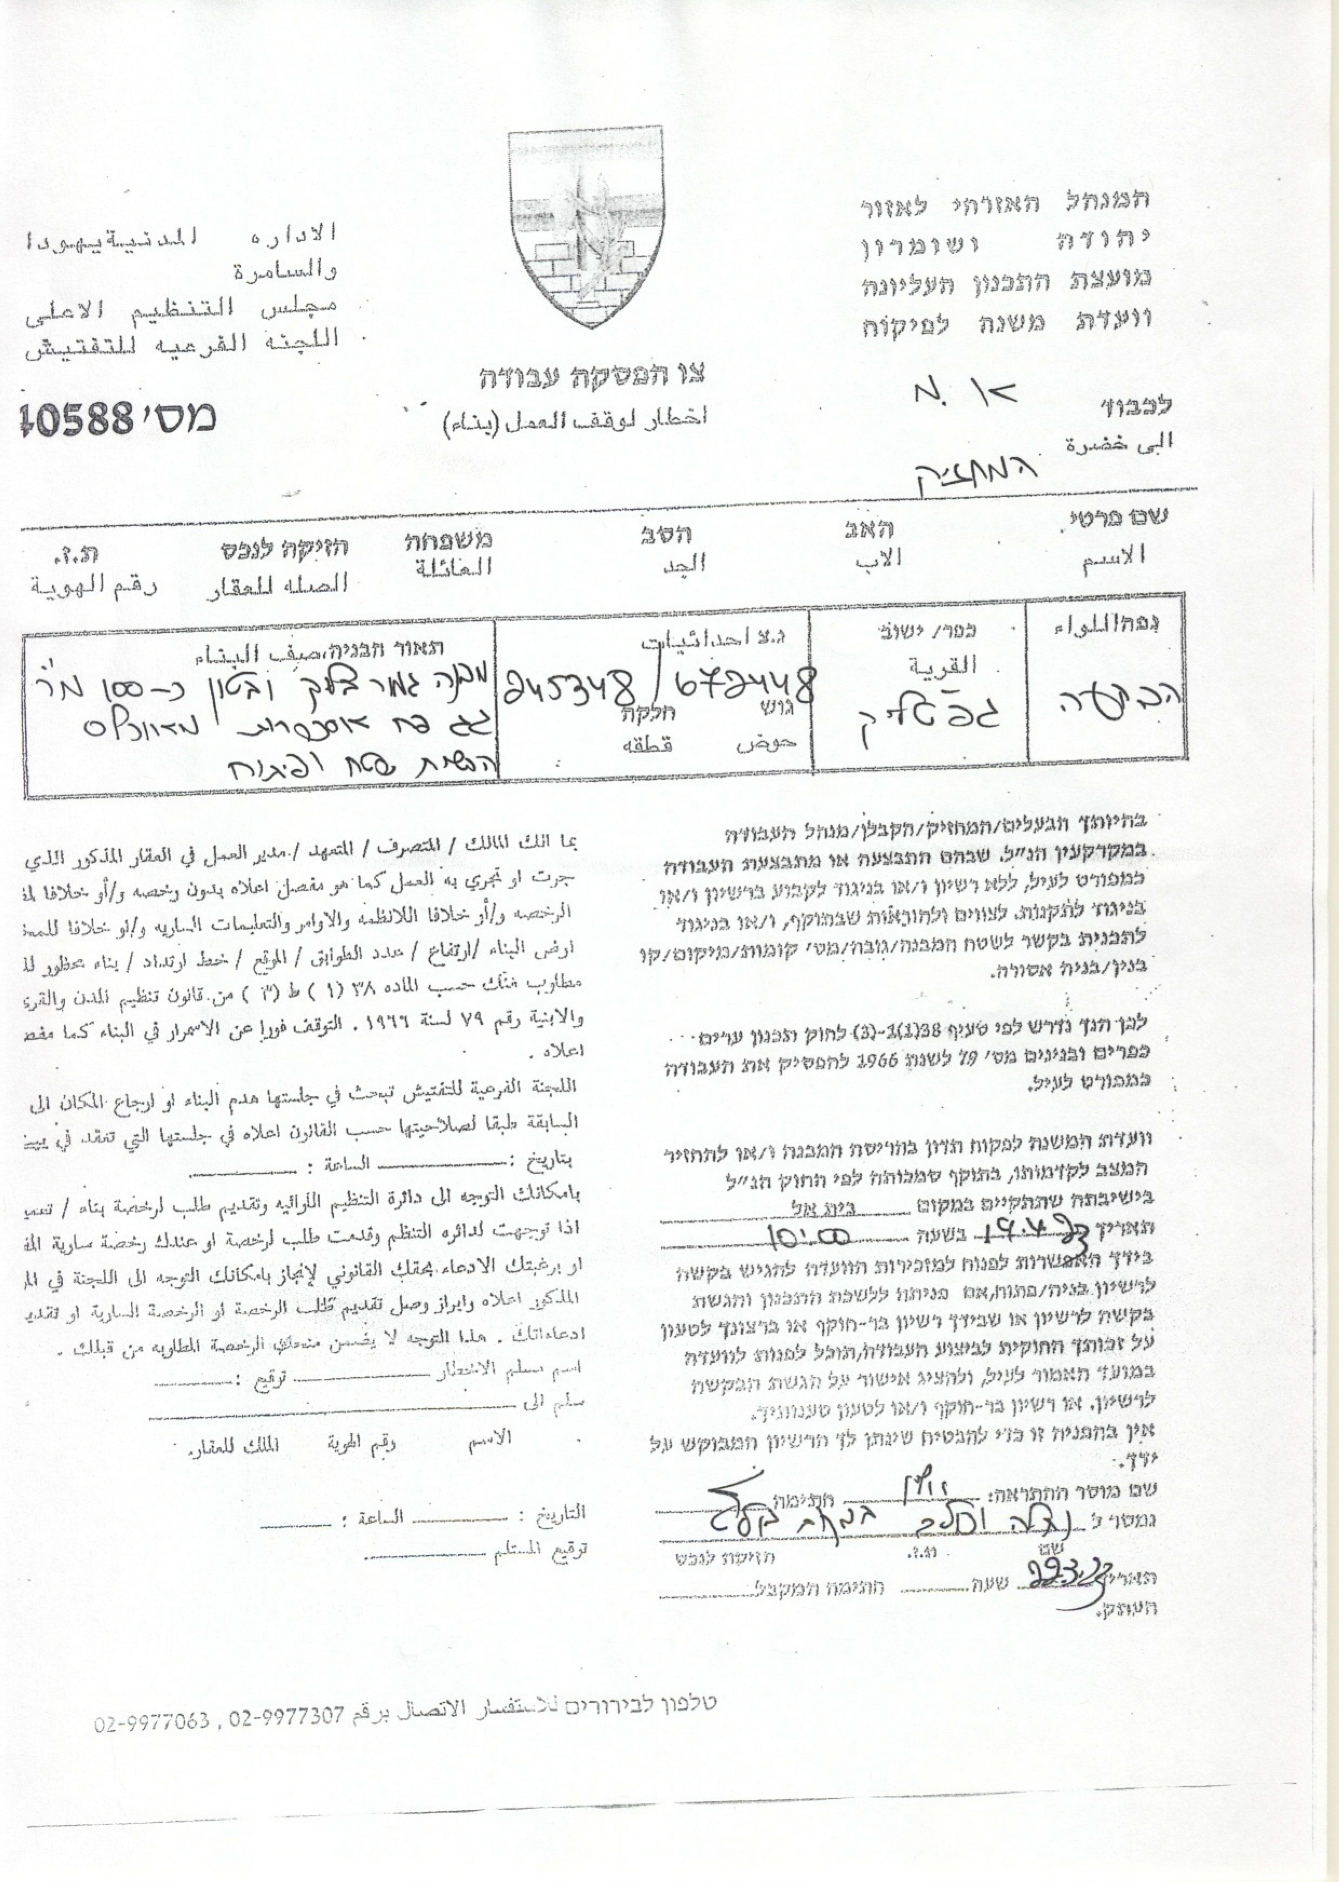 המנהל האזרחי לאזור
יהודה ושומרון
מועצת התכנון העליונה
וועדת משנה לפיקוח
الاداره المدنية يهودا
والسامرة
مجلس التنظيم الاعلى
اللجنه الفرعيه للتفتيش
צו הפסקה עבודה
اخطار لوقف العمل (بناء)
מס' 40588
לכבוד
الى حضرة
המחזיק
שם פרטי האב הסב משפחה הזיקה לנכס ת.ז.
الاسم الاب الجد العائلة الصله للعقار رقم الهوية
נפה/اللواء
הבקעה
כפר/ ישוב
القرية
ג'פטליק
נ.צ احداثيات
245348 / 672448
גוש חלקה
حوض قطعه
תאור הבניה، صيف البناء
מבנה גמר בלוק ובטון כ-100 מ"ר
גג פח
הכשרת שטח ופיתוח
בהיותך הבעלים/המחזיק/הקבלן/מנהל העבודה
במקרקעין הנ"ל, שבהם התבצעה או מתבצעת העבודה
כמפורט לעיל, ללא רשיון ו/או בניגוד לקבוע ברשיון ו/או
בניגוד לתקנות, לצווים ולהוראות שבתוקף, ו/או בניגוד
לתבנית בקשר לשטח המבנה/גובה/מס' קומות/מיקום/קו
בנין/בניה אסורה.
לכן הנך נדרש לפי סעיף 38(1)-(3) לחוק תכנון ערים
כפרים ובנינים מס' 79 לשנת 1966 להפסיק את העבודה
כמפורט לעיל.
וועדת המשנה לפקוח תדון בהריסת המבנה ו/או להחזיר
המצב לקדמותו, בתוקף סמכותה לפי החוק הנ"ל
בישיבתה שתתקיים במקום בית אל
תאריך 19.4.23 בשעה 10:00
בידך האפשרות לפנות למזכירות הוועדה להגיש בקשה
לרשיון בניה/פתוח, אם פניתה ללשכת התכנון והגשת
בקשה לרשיון או שבידך רשיון בר-תוקף או ברצונך לטעון
על זכותך החוקית לביצוע העבודה, תוכל לפנות לוועדה
במועד האמור לעיל, ולהציג אישור על הגשת הבקשה
לרשיון, או רשיון בר-תוקף ו/או לטעון טענותיך.
אין בהפניה זו כדי להבטיח שינתן לך הרשיון המבוקש על
ידך.
שם מוסר ההתראה: חתימה
נמסר ל
שם ת.ז. הזיקה לנכס
תאריך 22.3.23 שעה חתימה המקבל
העתק.
بما انك المالك / المتصرف / المتعهد / مدير العمل في العقار المذكور الذي
جرت او تجري به العمل كما هو مفصل اعلاه بدون رخصه و/أو خلافا
الرخصه و/أو خلافا للانظمه والاوامر والتعليمات الساريه و/او خلافا
ارض البناء / ارتفاع / عدد الطوابق / الموقع / خط ارتداد / بناء محظور
مطلوب منك حسب الماده ٣٨ (١) ط (٣) من قانون تنظيم المدن والقرى
والابنية رقم ٧٩ لسنة ١٩٦٦ . التوقف فورا عن الاستمرار في البناء كما
اعلاه .
اللجنة الفرعية للتفتيش تبحث في جلستها هدم البناء او ارجاع المكان الى
السابقة طبقا لصلاحيتها حسب القانون اعلاه في جلستها التي تعقد في
بتاريخ : الساعة :
بامكانك التوجه الى دائرة التنظيم اللوائيه وتقديم طلب لرخصة بناء /
اذا توجهت لدائره التنظم وقدمت طلب لرخصة او عندك رخصة سارية
او برغبتك الادعاء بحقك القانوني لإنجاز بامكانك التوجه الى اللجنة في
المذكور اعلاه وابراز وصل تقديم طلب الرخصة او الرخصة السارية او
ادعاءاتك . هذا التوجه لا يضمن منحك الرخصة المطلوبه من قبلك .
اسم مسلم الاخطار توقيع :
سلم الى
الاسم رقم الهوية المالك للعقار.
التاريخ : الساعة :
توقيع المستلم
טלפון לבירורים للاستفسار الاتصال برقم 02-9977307 , 02-9977063